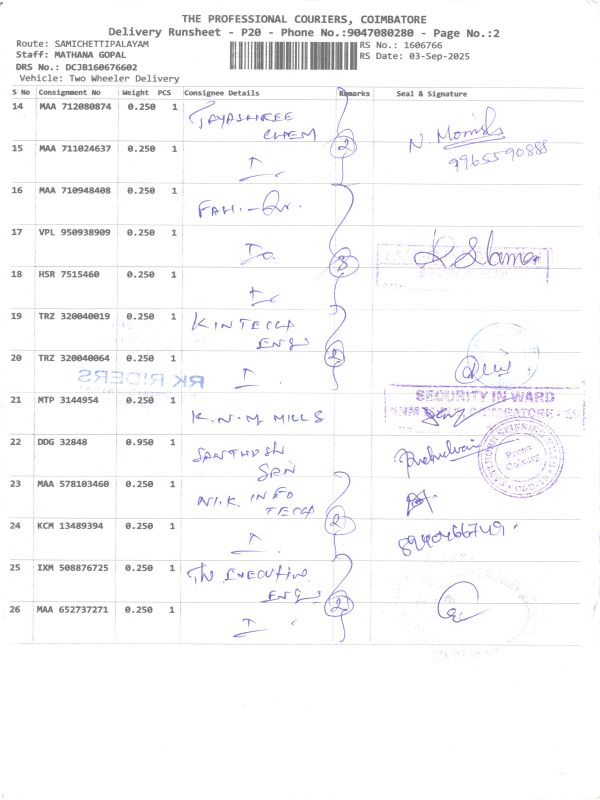 THE PROFESSIONAL COURIERS, COIMBATORE
Delivery Runsheet - P20 - Phone No.:9047080280 - Page No.:2
Route: SAMICHETTIPALAYAM
RS No.: 1606766
Staff: MATHANA GOPAL
RS Date: 03-Sep-2025
DRS No.: DCJB160676602
Vehicle: Two Wheeler Delivery
S No Consignment No Weight PCS Consignee Details Remarks Seal & Signature
14 MAA 712080874 0.250 1 JAYASHREE CHEM
15 MAA 711024637 0.250 1 2 9965590888
16 MAA 710948408 0.250 1
17 VPL 950938909 0.250 1 3
18 HSR 7515460 0.250 1
19 TRZ 320040019 0.250 1 KINTECH ENGS
20 TRZ 320040064 0.250 1 2
RK RIDERS
21 MTP 3144954 0.250 1 K.N.M MILLS SECURITY INWARD
22 DDG 32848 0.950 1 SANTHOSH SPN
23 MAA 578103460 0.250 1 INFO TECH
24 KCM 13489394 0.250 1 2
25 IXM 508876725 0.250 1 EXECUTIVE ENGS
26 MAA 652737271 0.250 1 2